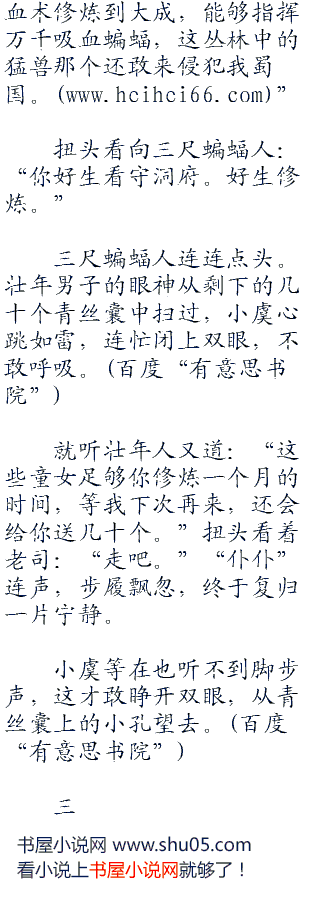 血术修炼到大成，能够指挥
万千吸血蝙蝠，这丛林中的
猛兽那个还敢来侵犯我蜀
国。(www.hcihci66.com)”
扭头看向三尺蝙蝠人：
“你好生看守洞府。好生修
炼。”
三尺蝙蝠人连连点头。
壮年男子的眼神从剩下的几
十个青丝囊中扫过，小虞心
跳如雷，连忙闭上双眼，不
敢呼吸。(百度“有意思书
院”)
就听壮年人又道：“这
些童女足够你修炼一个月的
时间，等我下次再来，还会
给你送几十个。”扭头看着
老司：“走吧。”“仆仆”
连声，步履飘忽，终于复归
一片宁静。
小虞等在也听不到脚步
声，这才敢睁开双眼，从青
丝囊上的小孔望去。(百度
“有意思书院”)
三
书屋小说网 www.shu05.com
看小说上书屋小说网就够了！